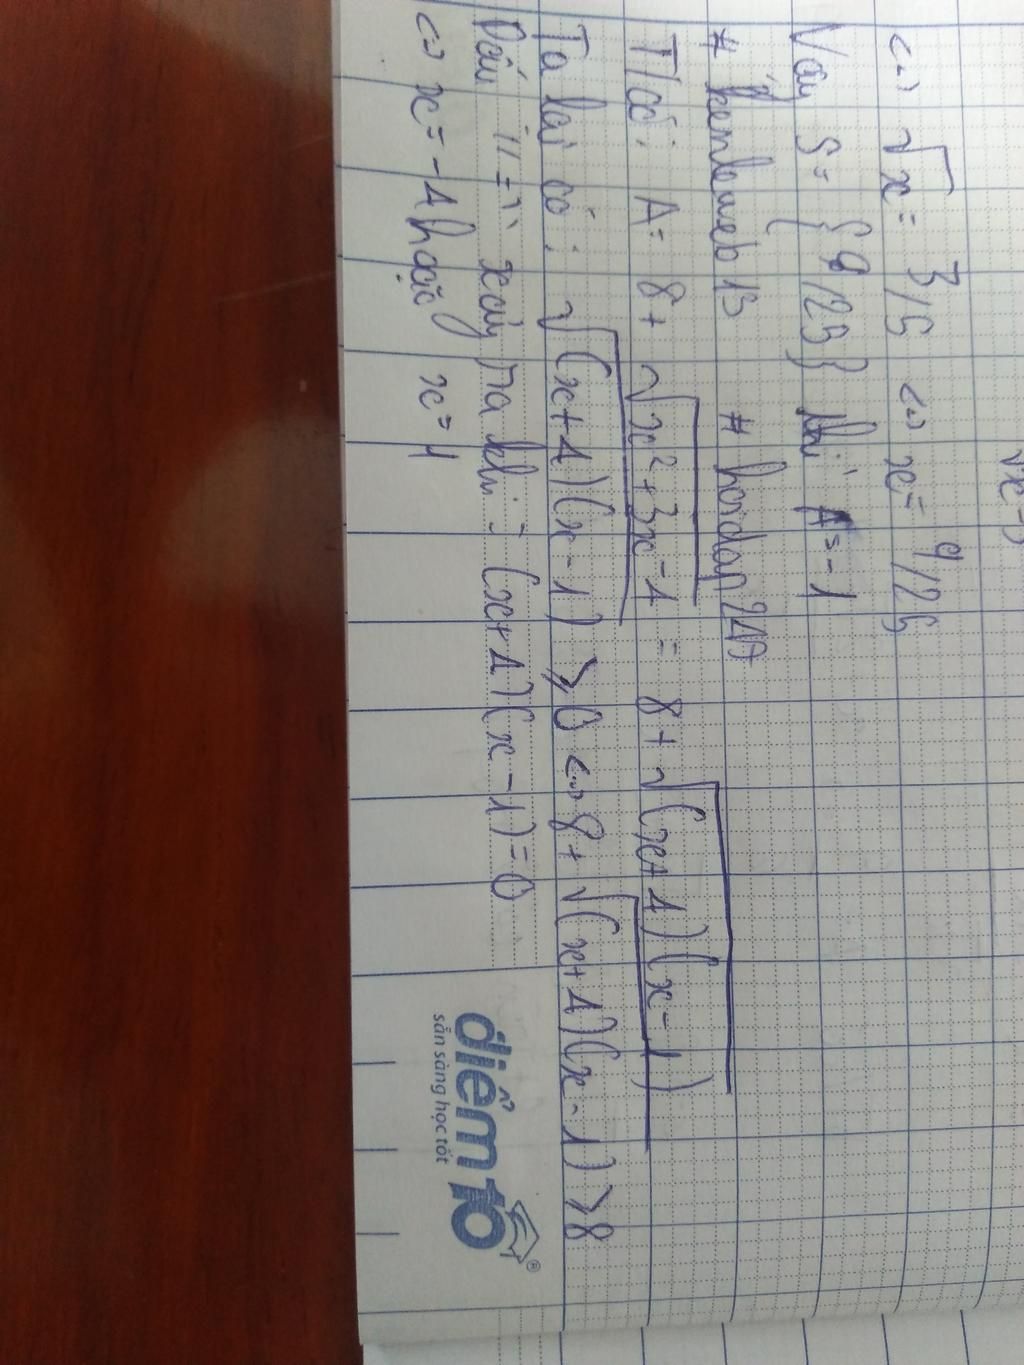 √x-5
⇔ √x = 3/5 ⇔ x = 9/25
Vậy S = { 9/25 } thì A = -1
# kenhweb 13 # hoidap 247
Ta có: A = 8 + √x²+3x-4 = 8 + √(x+4)(x-1)
Ta lại có: √(x+4)(x-1) ≥ 0 ⇔ 8 + √(x+4)(x-1) ≥ 8
Dấu "=" xảy ra khi: (x+4)(x-1) = 0
⇔ x = -4 hoặc x = 1
điểm 10 ®
sẵn sàng học tốt